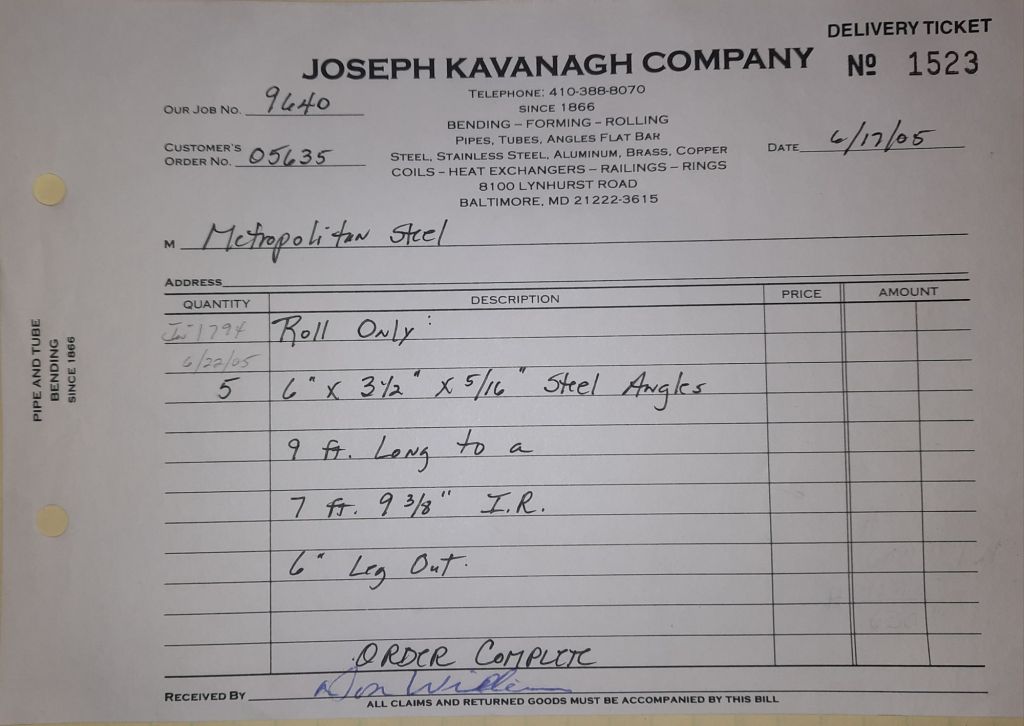 DELIVERY TICKET
JOSEPH KAVANAGH COMPANY
Nº 1523
TELEPHONE: 410-388-8070
SINCE 1866
BENDING – FORMING – ROLLING
PIPES, TUBES, ANGLES FLAT BAR
STEEL, STAINLESS STEEL, ALUMINUM, BRASS, COPPER
COILS – HEAT EXCHANGERS – RAILINGS – RINGS
8100 LYNHURST ROAD
BALTIMORE, MD 21222-3615
OUR JOB NO. 9640
CUSTOMER'S
ORDER NO. 05635
DATE 6/17/05
M Metropolitan Steel
ADDRESS
QUANTITY DESCRIPTION PRICE AMOUNT
1794 Roll Only:
6/22/05
5 6" x 3 1/2" x 5/16" Steel Angles
9 ft. Long to a
7 ft. 9 3/8" I.R.
6" Leg Out.
ORDER COMPLETE
RECEIVED BY Don
ALL CLAIMS AND RETURNED GOODS MUST BE ACCOMPANIED BY THIS BILL
PIPE AND TUBE
BENDING
SINCE 1866